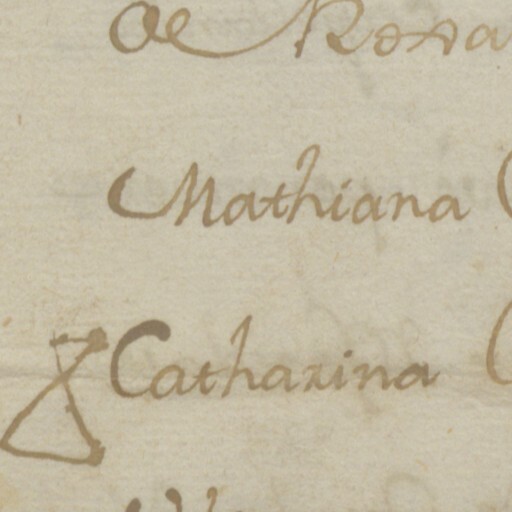 de Rosa
Mathiana
Catharina